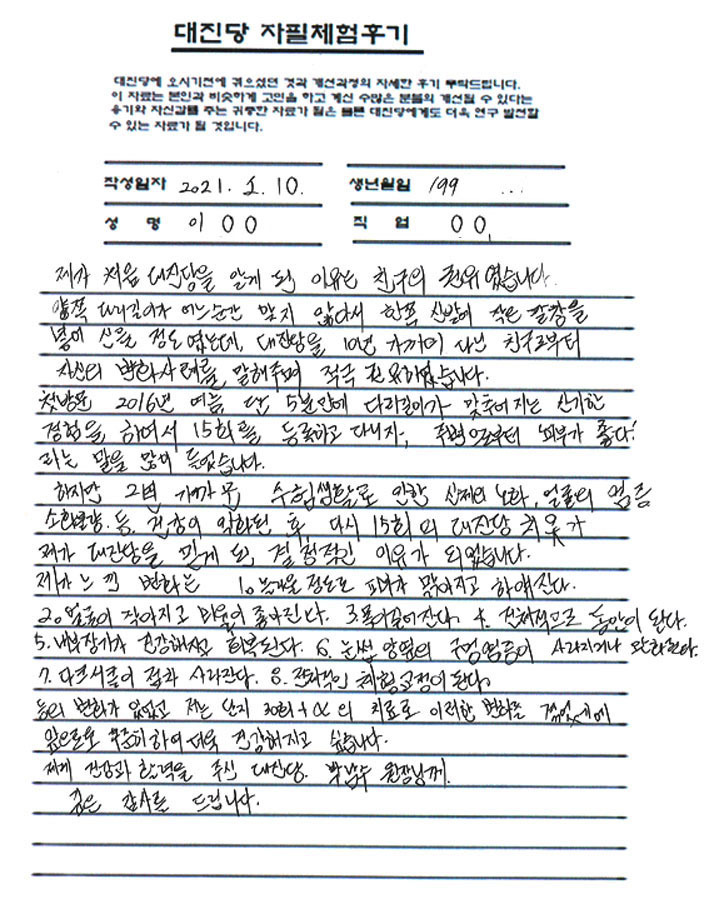 대진당 자필체험후기
대진당에 오시기전에 겪으셨던 것과 개선과정의 자세한 후기 부탁드립니다.
이 자료는 본인과 비슷하게 고민을 하고 계신 수많은 분들의 개선될 수 있다는
용기와 자신감를 주는 귀중한 자료가 될은 물론 대진당에게도 더욱 연구 발전할
수 있는 자료가 될 것입니다.
작성일자 2021. 1. 10. 생년월일 199 ...
성 명 이 0 0 직 업 0 0
제가 처음 대진당을 알게 된 이유는 친구의 권유였습니다.
양쪽 다리길이가 어느순간 맞지 않아서 한쪽 신발에 작은 깔창을
넣어 신을 정도 였는데, 대진당을 10년 가까이 다닌 친구로부터
자신의 변화사례를 말해주며 적극 권유하였습니다.
첫방문 2016년 여름 단 5분만에 다리길이가 맞추어지는 신기한
경험을 하여서 15회를 등록하고 다니자, 주변으로부터 피부가 좋다!
라는 말을 많이 들었습니다.
하지만 2년 가까운 수험생활로 인한 신체의 노화, 얼굴의 염증
소화불량 등 건강이 악화된 후 다시 15회의 대진당 치유가
제가 대진당을 믿게 된 결정적인 이유가 되었습니다.
제가 느낀 변화는 1. 놀라울 정도로 피부가 맑아지고 하얘진다.
2. 얼굴이 작아지고 비율이 좋아진다. 3. 목이 길어진다. 4. 전체적으로 동안이 된다.
5. 내부장기가 건강해지고 회복된다. 6. 눈썹 양옆의 구멍염증이 사라지거나 완화된다.
7. 다크서클이 점차 사라진다. 8. 전체적인 체형교정이 된다.
등의 변화가 있었고 저는 단지 30회+α의 치료로 이러한 변화를 겪었기에
앞으로도 꾸준히 하여 더욱 건강해지고 싶습니다.
제게 건강과 합격을 주신 대진당. 박남수 원장님께.
깊은 감사를 드립니다.